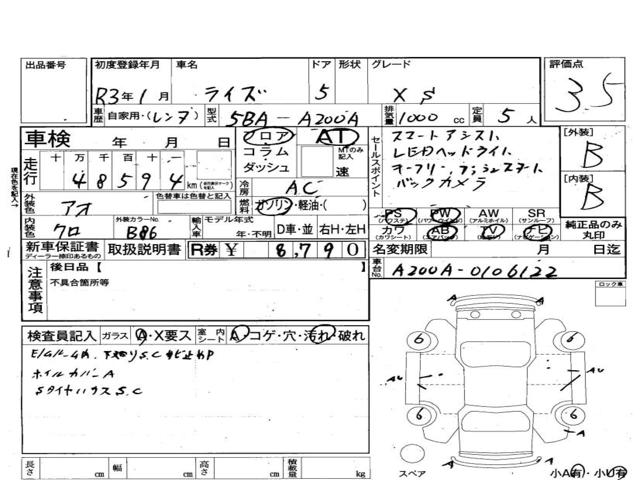 出品番号 初度登録年月 車名 ドア 形状 グレード 評価点
R3年1月 ライズ 5 X S 3.5
車歴 自家用・(レンタ) 型式 5BA-A200A 排気量 1000 cc 定員 5 人
車検 年 月 日 フロア AT セールスポイント スマートアシスト [外装]
走行 十 万 千 百 十 コラム MTのみ記入 LEDヘッドライト B
48594 km ダッシュ 速 キーフリー, プッシュスタート [内装]
現在色を記入→ 外装色 アオ 色替車は色替と記入 冷房 AC バックカメラ B
燃料 ガソリン・軽油・( )
PS (パワステ) PW (パワーウインドウ) AW (アルミホイル) SR (サンルーフ)
内装色 クロ 外装カラーNo. B86 輸入車 モデル年式 年・不明 D車・並 右H・左H カワ (カワシート) AB (エアバック) TV ナビ (ナビゲーション) 純正品のみ丸印
新車保証書 ディーラー捺印あるもの 取扱説明書 R券 ¥ 8,790 名変期限 月 日迄
注意事項 後日品【 】 車台No. A200A-0106122
不具合箇所等 ロック車
検査員記入 ガラス A・X要ス 室内シート A・コゲ・穴・汚れ・破れ
A
6 6
AU AU
ホイルカバーA
S.C
6 6
A
A
長さ cm 幅 cm 高さ cm 積載量 kg スペア 小A有・小U有